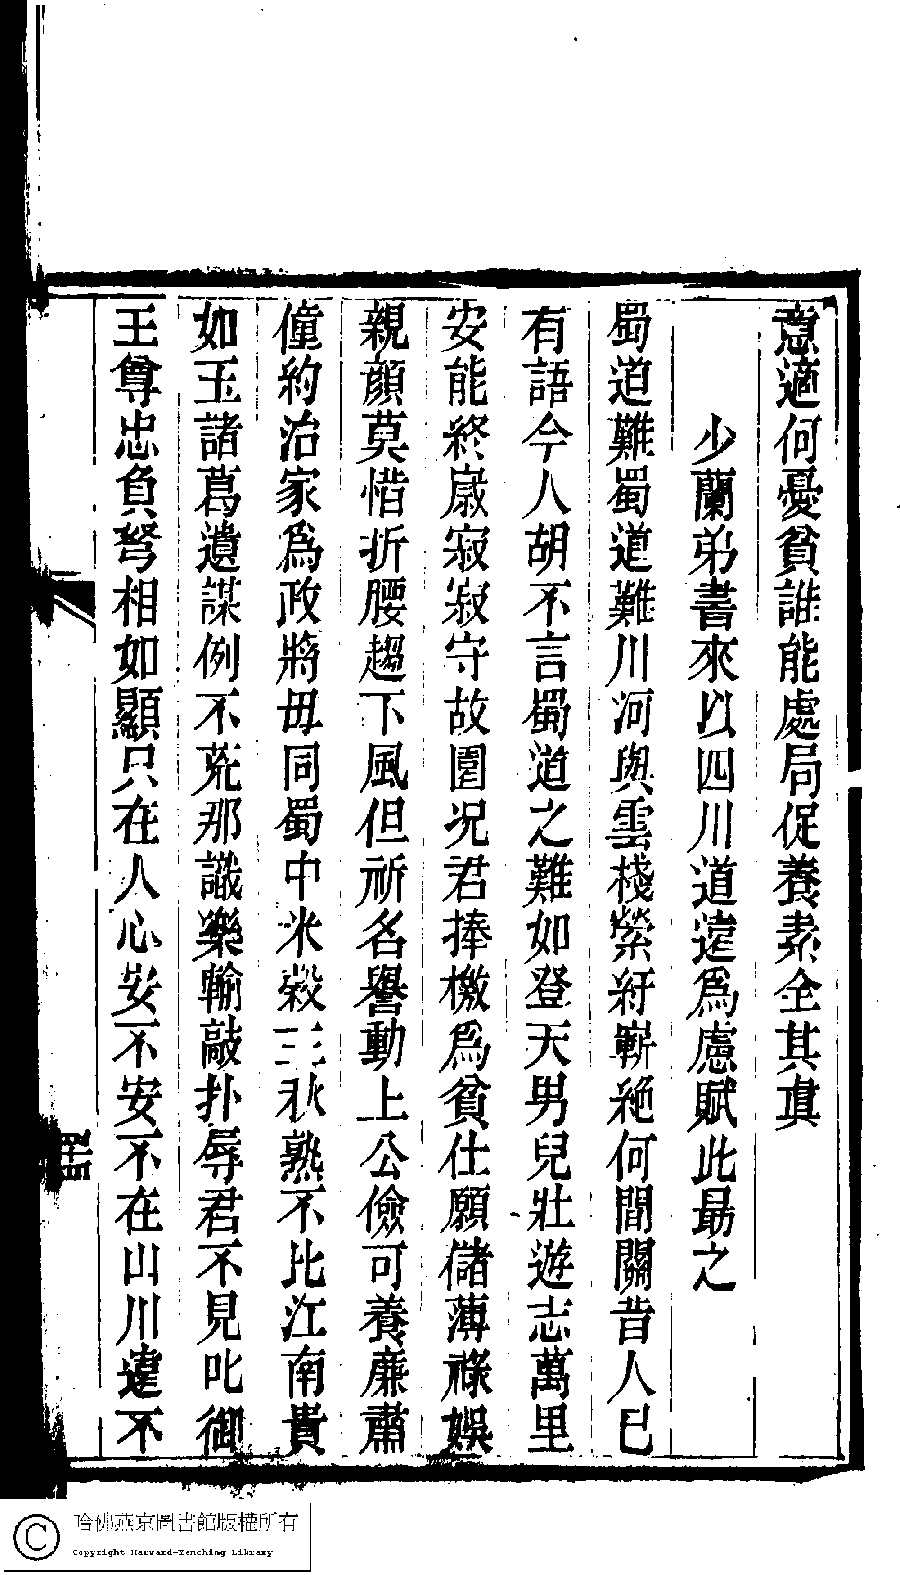 意適何憂貧誰能處局促養素全其真
少蘭弟書來以四川道遠爲慮賦此勗之
蜀道難蜀道難川河與雲棧縈紆嶄絶何間關昔人已
有語今人胡不言蜀道之難如登天男兒壯遊志萬里
安能終歲寂寂守故園况君捧檄爲貧仕願儲薄祿娛
親顔莫惜折腰趨下風但祈名譽動上公儉可養廉肅
僮約治家爲政將毋同蜀中米榖三秋熟不比江南貴
如玉諸葛遺謀例不荒那識樂輸敲扑辱君不見叱御
王尊忠負弩相如顯只在人心安不安不在山川遠不
哈佛燕京圖書館版權所有
Copyright Harvard-Yenching Library